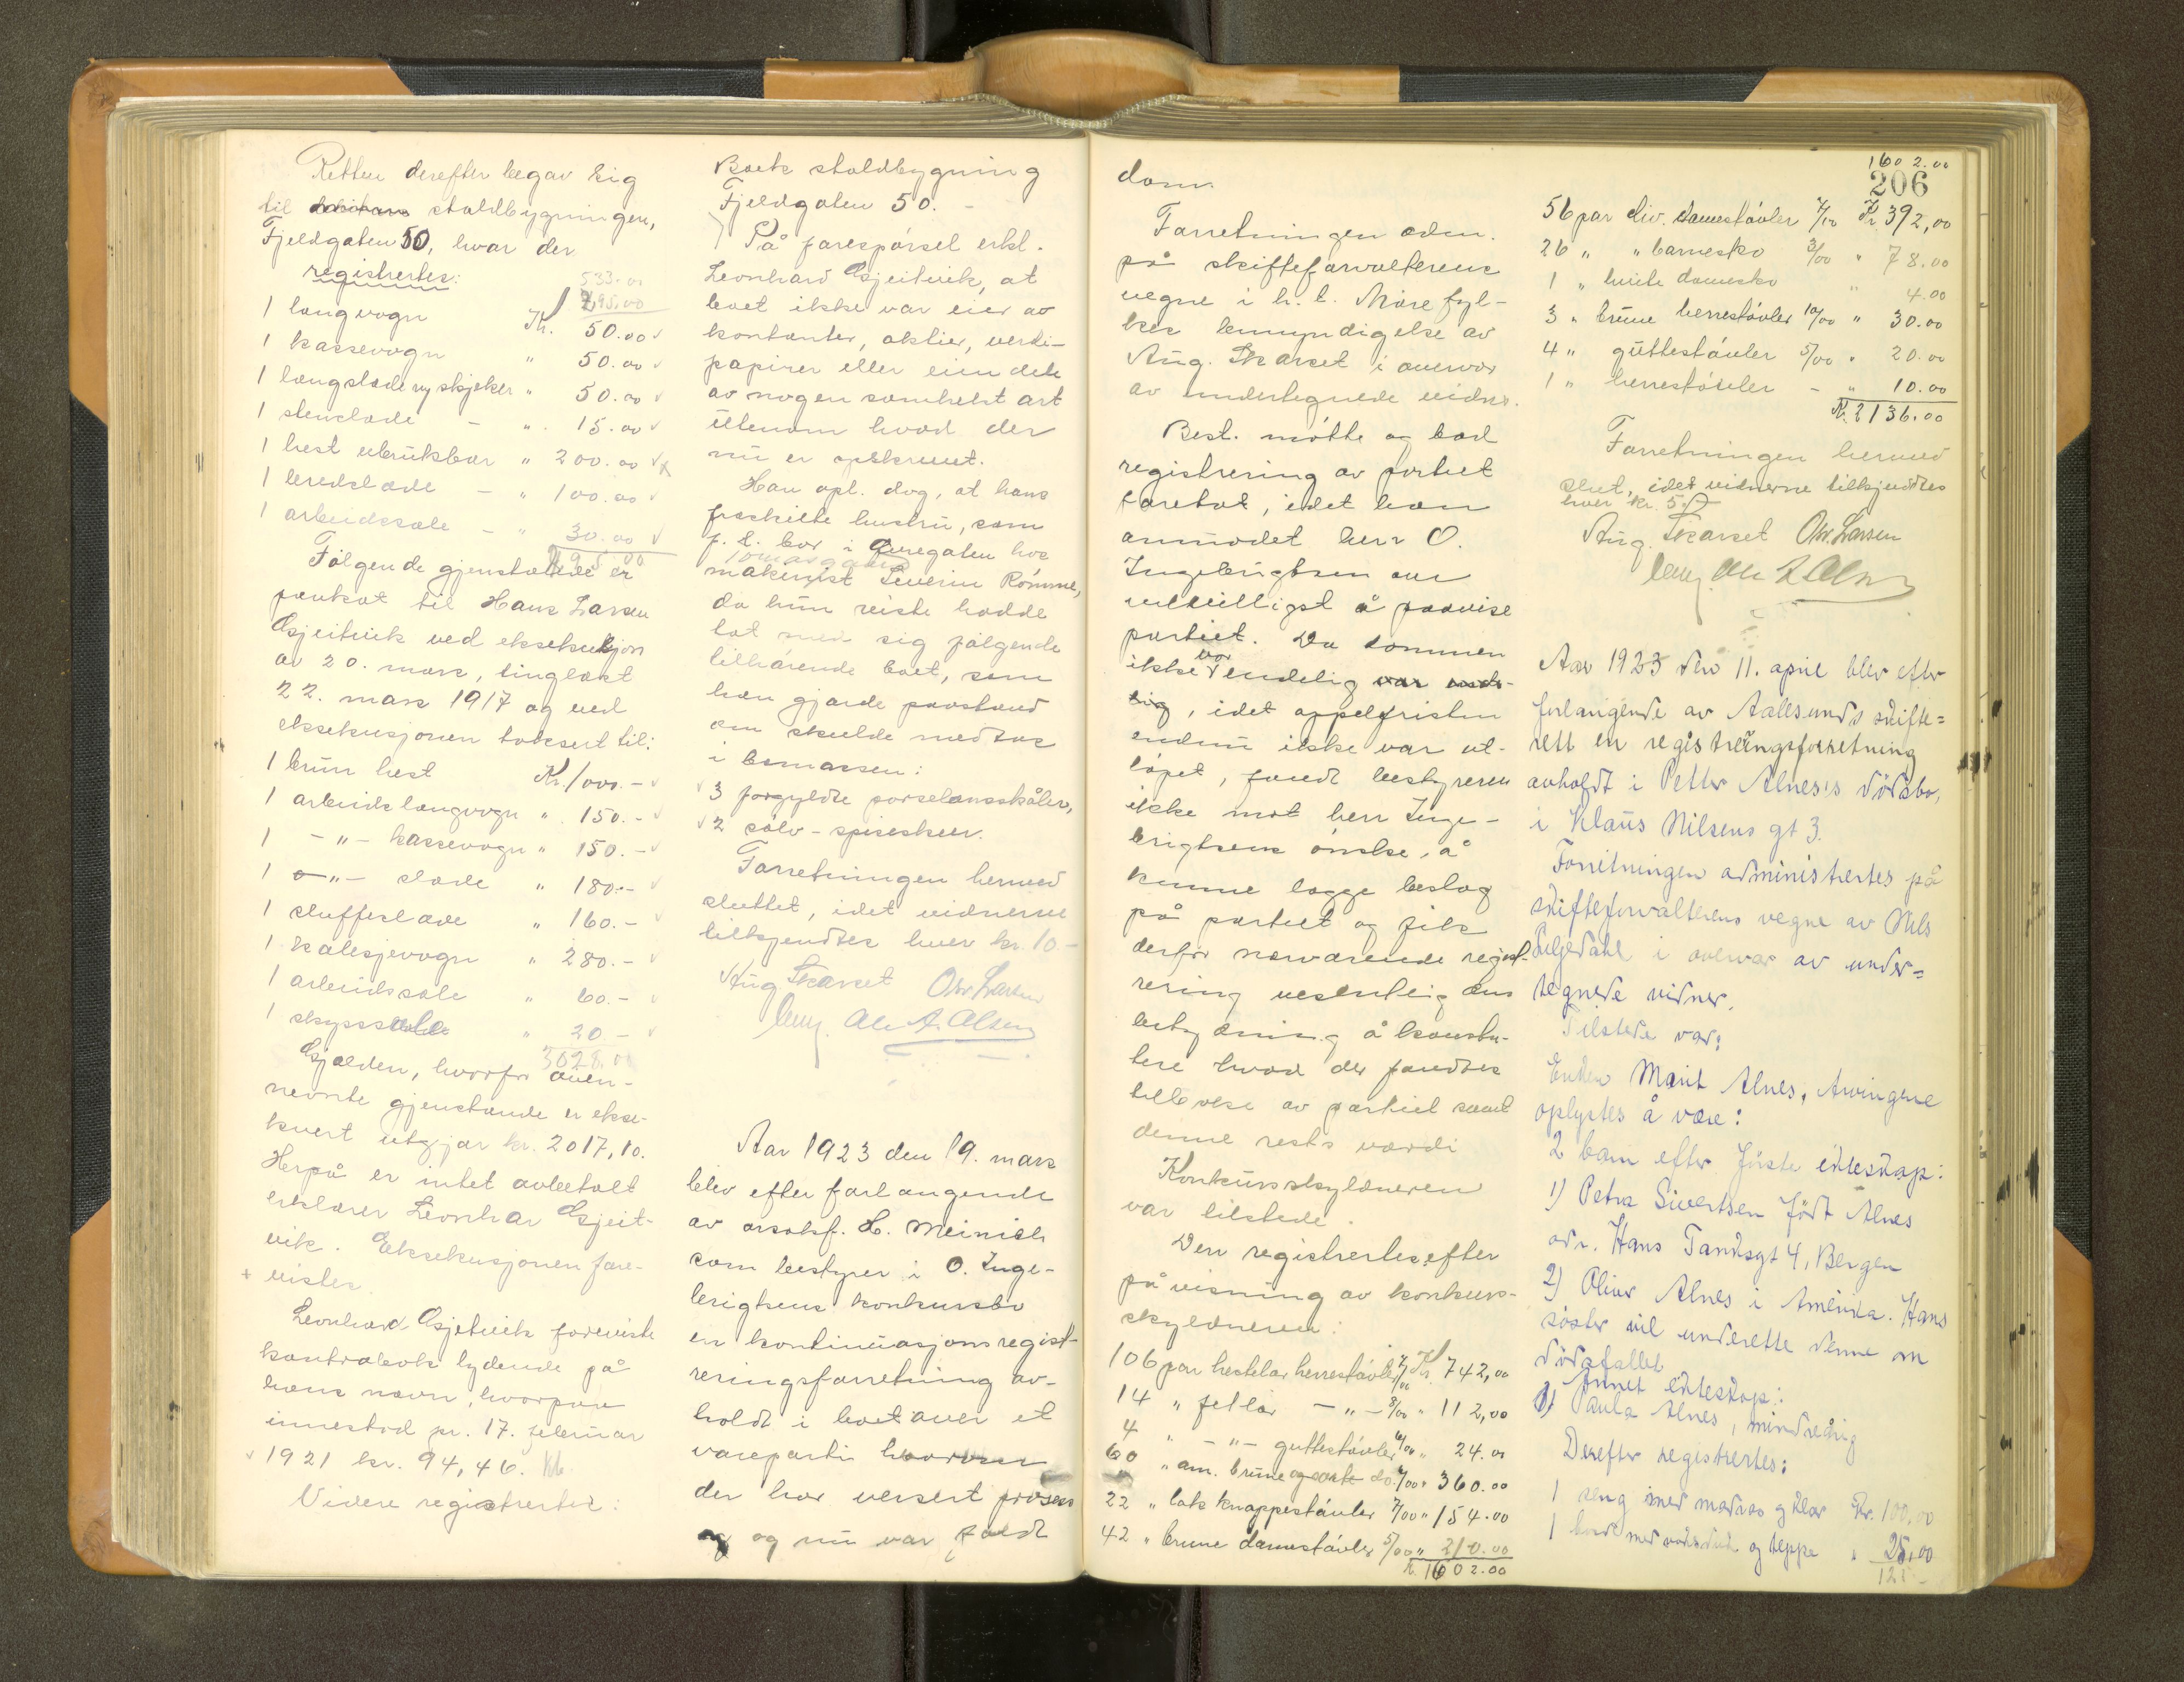 Retten derefter begav sig
til staldbygningen,
Fjeldgaten 50, hvor der
registrertes:
533.00
495.00
1 langvogn Kr. 50.00
1 kassevogn " 50.00
1 langslæde m/skjeker " 50.00
1 stenslæde - " 15.00
1 hest ubrukbar " 200.00
1 bredslæde - " 100.00
1 arbeidssæle - " 30.00
495.00
Følgende gjenstande er
pantsat til Hans Larsen
Gjeitvik ved eksekusjon
av 20. mars, tinglæst
22. mars 1917 og ved
eksekusjonen taksert til:
1 brun hest Kr. 1000.-
1 arbeidslangvogn " 150.-
1 -"- kassevogn " 150.-
1 -"- slæde " 180.-
1 sluffeslæde " 160.-
1 kalesjevogn " 280.-
1 arbeidssæle " 60.-
1 skyssæle " 20.-
3028.00
Gjælden, hvorfor oven-
nevnte gjenstande er ekse-
kvert utgjør kr. 2017,10.
Herpå er intet avbetalt
erklærer Leonhar Gjeit-
vik. Eksekusjonen fore-
vistes.
Leonhard Gjeitvik foreviste
kontrabok lydende på
hans navn, hvorpaa
innestod pr. 17. februar
1921 kr. 94,46.
Videre registrertes:
Boets staldbygning
Fjeldgaten 50. -
På forespørsel erkl.
Leonhard Gjeitvik, at
boet ikke var eier av
kontanter, aktier, verdi-
papirer eller eiendele
av nogen somhelst art
utenom hvad der
nu er opskrevet.
Han opl. dog, at hans
fraskilte hustru, som
f. t. bor i hos
makinist Severin Rømme,
da hun reiste hadde
tat med sig følgende
tilhørende boet, som
han gjorde paastand
om skulde medtas
i bomassen:
3 forgyldte porselænsskåler,
2 sølv-spiseskeer.
Forretningen hermed
sluttet, idet vidnerne
tilkjendtes hver kr. 10-
Aug Skarset Osv. Larsen
Ole A. Olsen
Aar 1923 den 19. mars
blev efter forlangende
av orsakf. H. Meinich
som bestyrer i O. Inge-
brigtsens konkursbo
en kontinuasjonsregist-
reringsforretning av-
holdt i boet over et
vareparti hvorom
der har versert prosess
og nu var faldt
dom.
Forretningen adm.
på skifteforvalterens
vegne i h. t. Møre fyl-
kes bemyndigelse av
Aug. Skarset i overvær
av undertegnede vidner.
Best. møtte og bad
registrering av partiet
foretat, idet han
anmodet herr O.
Ingebrigtsen om
velvilligst å paavise
partiet. Da dommen
ikke var endelig
, idet appelfristen
endnu ikke var ut-
løpet, fandt bestyreren
ikke mot herr Inge-
brigtsens ønske, å
kunne lægge beslag
på partiet og fik
derfor nærværende regist-
rering vesentlig den
betydning å konsta-
tere hvad der fandtes
tilbake av partiet samt
denne rests værdi
Konkursskyldneren
var tilstede.
Der registrertes efter
påvisning av konkurs-
skyldneren:
106 par herrestøvler 7/00 Kr. 742,00
14 " fetlær -"- 8/00 " 112,00
4 " -"- guttestøvler 6/00 " 24.00
60 " am. brune og sorte do. 6/00 " 360.00
22 " laks knappestøvler 7/00 " 154.00
42 " brune damestøvler 5/00 " 210.00
Kr. 1602.00
1602.00
206
56 par div. damestøvler 7/00 Kr 392,00
26 " " barnesko 3/00 " 78.00
1 " hvite damesko " 4.00
3 " brune herrestøvler 10/00 " 30.00
4 " guttestøvler 5/00 " 20.00
1 " herrestøvler - " 10.00
Kr. 2136.00
Forretningen hermed
slut, idet vidnerne tilkjendtes
hver kr. 5.
Aug. Skarset Osv. Larsen
Aar 1923 den 11. april blev efter
forlangende av Aalesunds skifte=
rett en registreringsforretning
avholdt i Petter Alnes's dødsbo,
i Klaus Nilsens gt 3.
Forretningen administrertes på
skifteforvalterens vegne av Nils
i overvær av under=
tegnede vidner.
Tilstede var:
Enken Marit Alnes. Arvingene
oplystes å være:
2 barn efter første ekteskap:
1) Petra Sivertsen født Alnes
adr. Hans Tandsgt 4, Bergen
2) Oliver Alnes i Amerika. Hans
søster vil underrette denne om
dødsfallet
Annet ekteskap:
1) Paula Alnes, mindreårig
Derefter registrertes:
1 seng med madras og klær Kr. 100,00
1 bord med voksduk og teppe " 25,00
125-